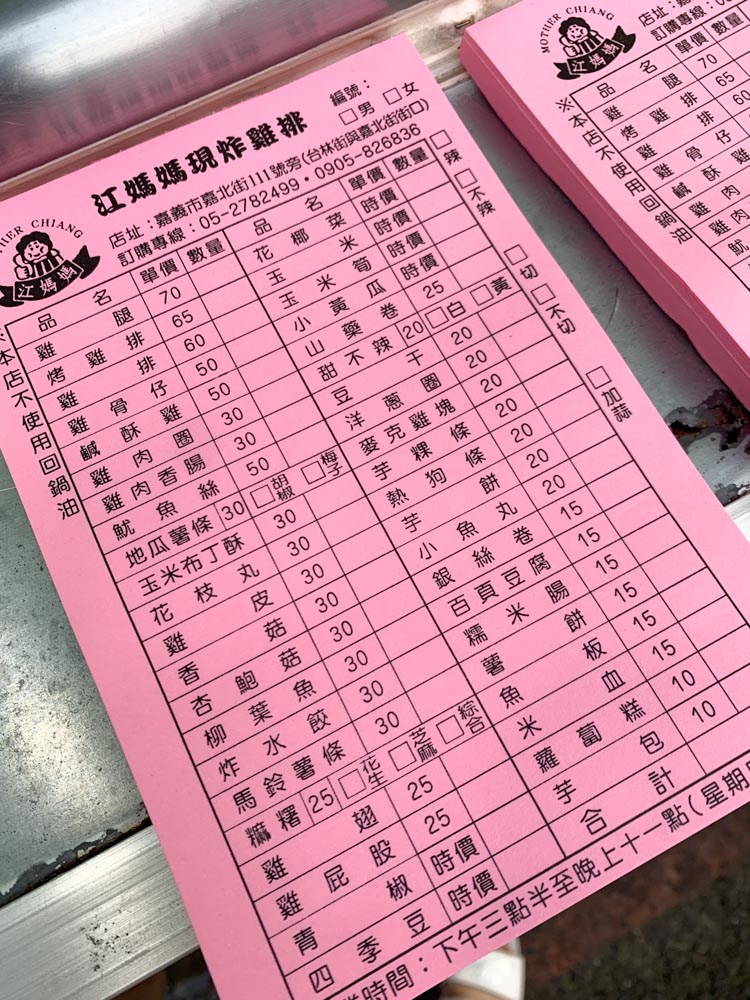 江媽媽現炸雞排
編號：
□男 □女
店址：嘉義市嘉北街111號旁(台林街與嘉北街街口)
訂購專線：05-2782499・0905-826836
MOTHER CHIANG
江媽媽
※本店不使用回鍋油
品名 單價 數量
雞腿 70
烤雞排 65
雞排 60
雞骨仔 50
鹹酥雞 50
雞肉圈 30
雞肉香腸 30
魷魚絲 50
地瓜薯條 30 □胡椒 □梅子
玉米布丁酥 30
花枝丸 30
雞皮 30
香菇 30
杏鮑菇 30
柳葉魚 30
炸水餃 30
馬鈴薯條 30
䊳糬 25 □花生 □芝麻 □綜合
雞翅 25
雞屁股 25
青椒 時價
四季豆 時價
品名 單價 數量
花椰菜 時價
玉米 時價
玉米筍 時價
小黃瓜 時價
山藥卷 25
甜不辣 20 □白 □黃
豆干 20
洋蔥圈 20
麥克雞塊 20
芋粿條 20
熱狗條 20
芋餅 20
小魚丸 20
銀絲卷 15
百頁豆腐 15
糯米腸 15
薯餅 15
魚板 15
米血 15
蘿蔔糕 10
芋包 10
合計
□辣
□不辣
□切
□不切
□加蒜
時間：下午三點半至晚上十一點(星期
MOTHER CHIANG
江媽媽
店址：嘉
訂購專線：0
※本店不使用回鍋油
品名 單價 數量
雞腿 70
烤雞排 65
雞排 60
雞骨仔
鹹酥雞
雞肉
雞肉
魷